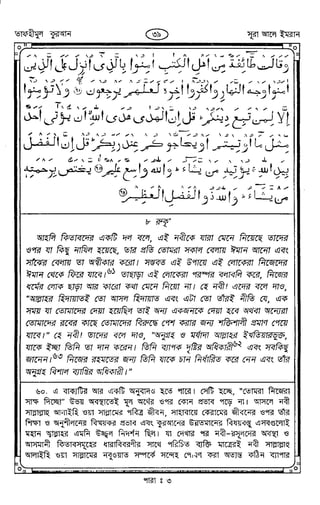 তাফহীমুল কুরআন
৩৯
সূরা আলে ইমরান
وَقَالَتْ طَّائِفَةٌ مِّنْ اَهْلِ الْكِتٰبِ اٰمِنُوْا بِالَّذِیْٓ اُنْزِلَ عَلَى الَّذِیْنَ
اٰمَنُوْا وَجْهَ النَّهَارِ وَاكْفُرُوْٓا اٰخِرَهٗ لَعَلَّهُمْ یَرْجِعُوْنَ وَلَا تُؤْمِنُوْٓا
اِلَّا لِمَنْ تَبِعَ دِیْنَكُمْ قُلْ اِنَّ الْهُدٰى هُدَى اللّٰهِ اَنْ یُّؤْتٰٓى اَحَدٌ
مِّثْلَ مَآ اُوْتِیْتُمْ اَوْ یُحَآجُّوْكُمْ عِنْدَ رَبِّكُمْ قُلْ اِنَّ الْفَضْلَ
بِیَدِ اللّٰهِ یُؤْتِیْهِ مَنْ یَّشَآءُ وَاللّٰهُ وَاسِعٌ عَلِیْمٌ یَّخْتَصُّ بِرَحْمَتِهٖ
مَنْ یَّشَآءُ وَاللّٰهُ ذُو الْفَضْلِ الْعَظِیْمِ
৮ রুকূ'
আহলি কিতাবদের একটি দল বলে, এই নবীকে যারা মেনে নিয়েছে তাদের
ওপর যা কিছু নাযিল হয়েছে, তার প্রতি তোমরা সকাল বেলায় ঈমান আনো এবং
সাঁঝের বেলায় তা অস্বীকার করো। সম্ভবত এই উপায়ে এই লোকেরা নিজেদের
ঈমান থেকে ফিরে যাবে। তাছাড়া এই লোকেরা পরস্পর বলাবলি করে, নিজের
ধর্মের লোক ছাড়া আর কারো কথা মেনে নিয়ো না। হে নবী! এদের বলে দাও,
"আল্লাহর হিদায়াতই তো আসল হিদায়াত এবং এটা তো তাঁরই নীতি যে, এক
সময় যা তোমাদের দেয়া হয়েছিল তাই অন্য একজনকে দেয়া হবে অথবা অন্যেরা
তোমাদের রবের কাছে তোমাদের বিরুদ্ধে পেশ করার জন্য শক্তিশালী প্রমাণ পেয়ে
যাবে।" হে নবী! তাদের বলে দাও, "অনুগ্রহ ও মর্যাদা আল্লাহর ইখতিয়ারভুক্ত,
যাকে ইচ্ছা তিনি তা দান করেন। তিনি ব্যাপক দৃষ্টির অধিকারী এবং সবকিছু
জানেন। নিজের রহমতের জন্য তিনি যাকে চান নির্ধারিত করে নেন এবং তাঁর
অনুগ্রহ বিশাল ব্যাপ্তির অধিকারী।"
৬০. এ বাক্যটির আর একটি অনুবাদও হতে পারে। সেটি হচ্ছে, "তোমরা নিজেরা
সাক্ষ দিচ্ছো" উভয় অবস্থাতেই মূল অর্থের ওপর কোন প্রভাব পড়ে না। আসলে নবী
সাল্লাল্লাহু আলাইহি ওয়া সাল্লামের পবিত্র জীবন, সাহাবায়ে কেরামের জীবনের ওপর তাঁর
শিক্ষা ও অনুশীলনের বিস্ময়কর প্রভাব এবং কুরআনের উন্নতমানের বিষয়বস্তু এসবগুলোই
মহান আল্লাহর এমনি উজ্জ্বল নিদর্শন ছিল। যা দেখার পর নবী-রসূলদের অবস্থা ও
আসমানী কিতাবসমূহের ধারাবিবরণীর সাথে পরিচিত ব্যক্তি মাত্রেরই নবী সাল্লাল্লাহু
আলাইহি ওয়া সাল্লামের নবুওয়াত সম্পর্কে সন্দেহ পোষণ করা অত্যন্ত কঠিন ব্যাপার
পারা : ৩